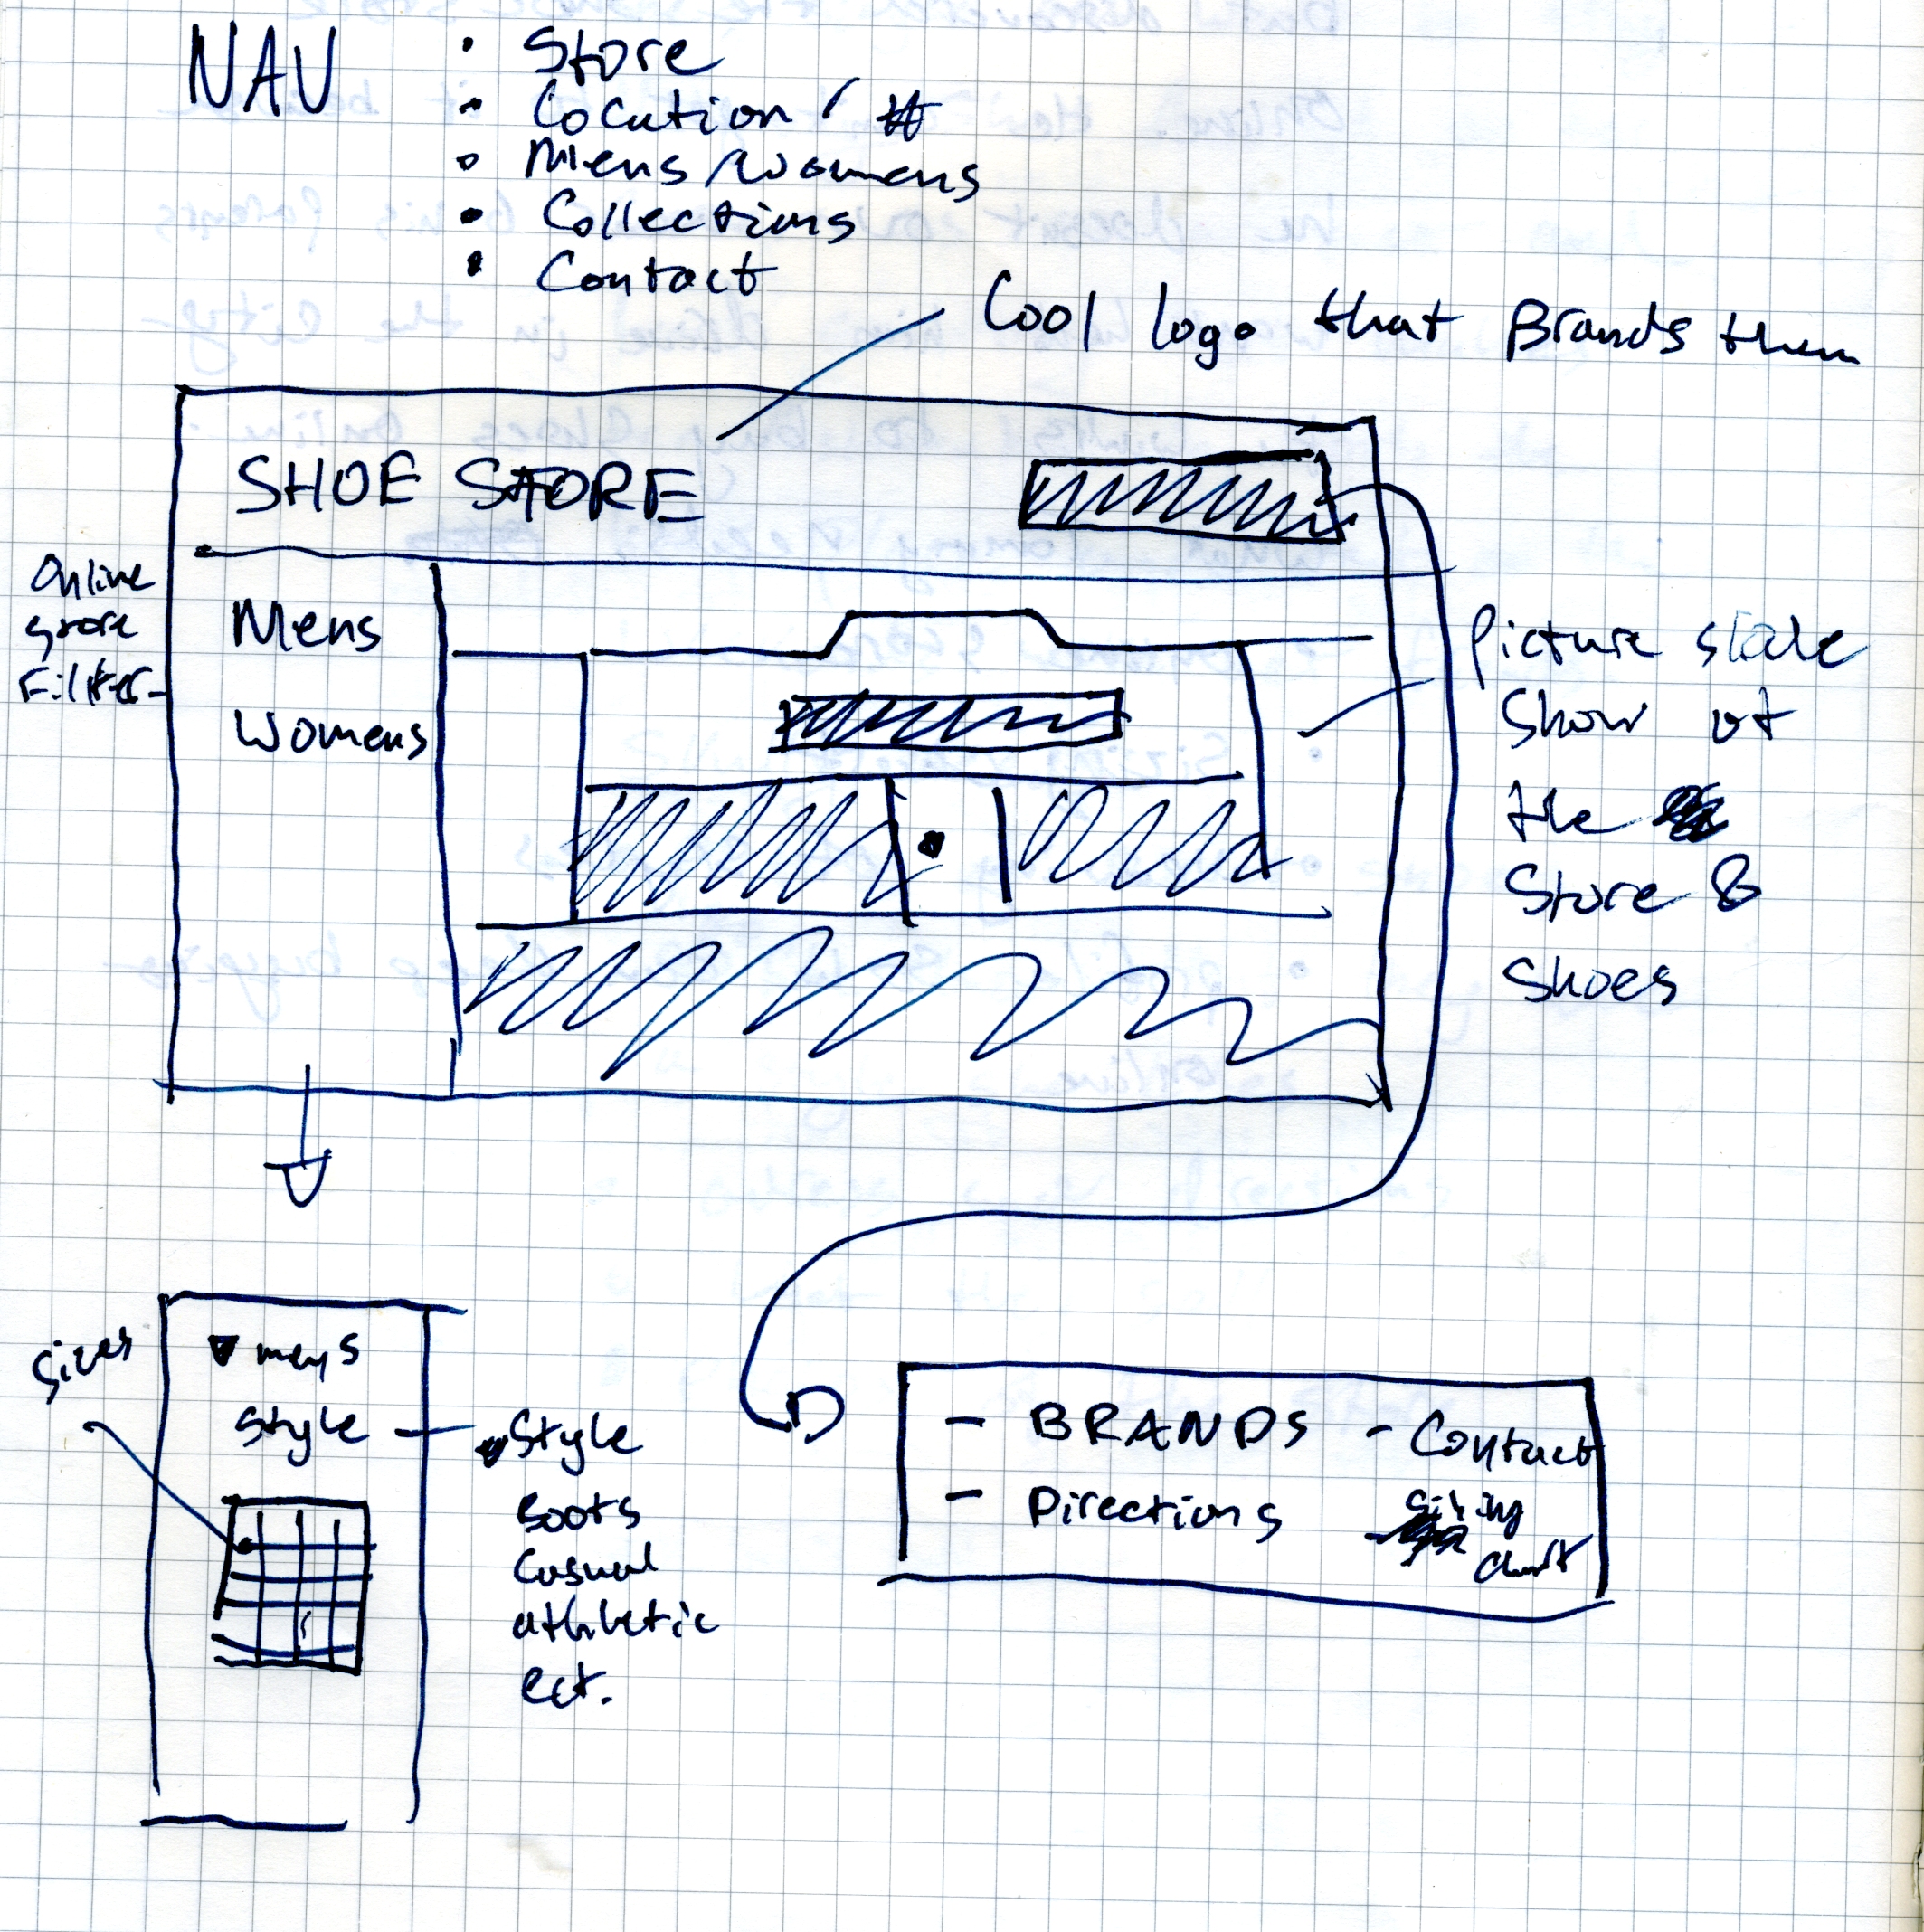 NAV
• Store
• Location / #
• Mens/Womens
• Collections
• Contact
Cool logo that Brands them
SHOE STORE
Online
store
Filter
Mens
Womens
Picture slide
Show of
the
Store &
Shoes
Sizes
▼ mens
style
Style
Boots
Casual
athletic
ect.
- BRANDS - Contact
- Directions
Sizing
chart